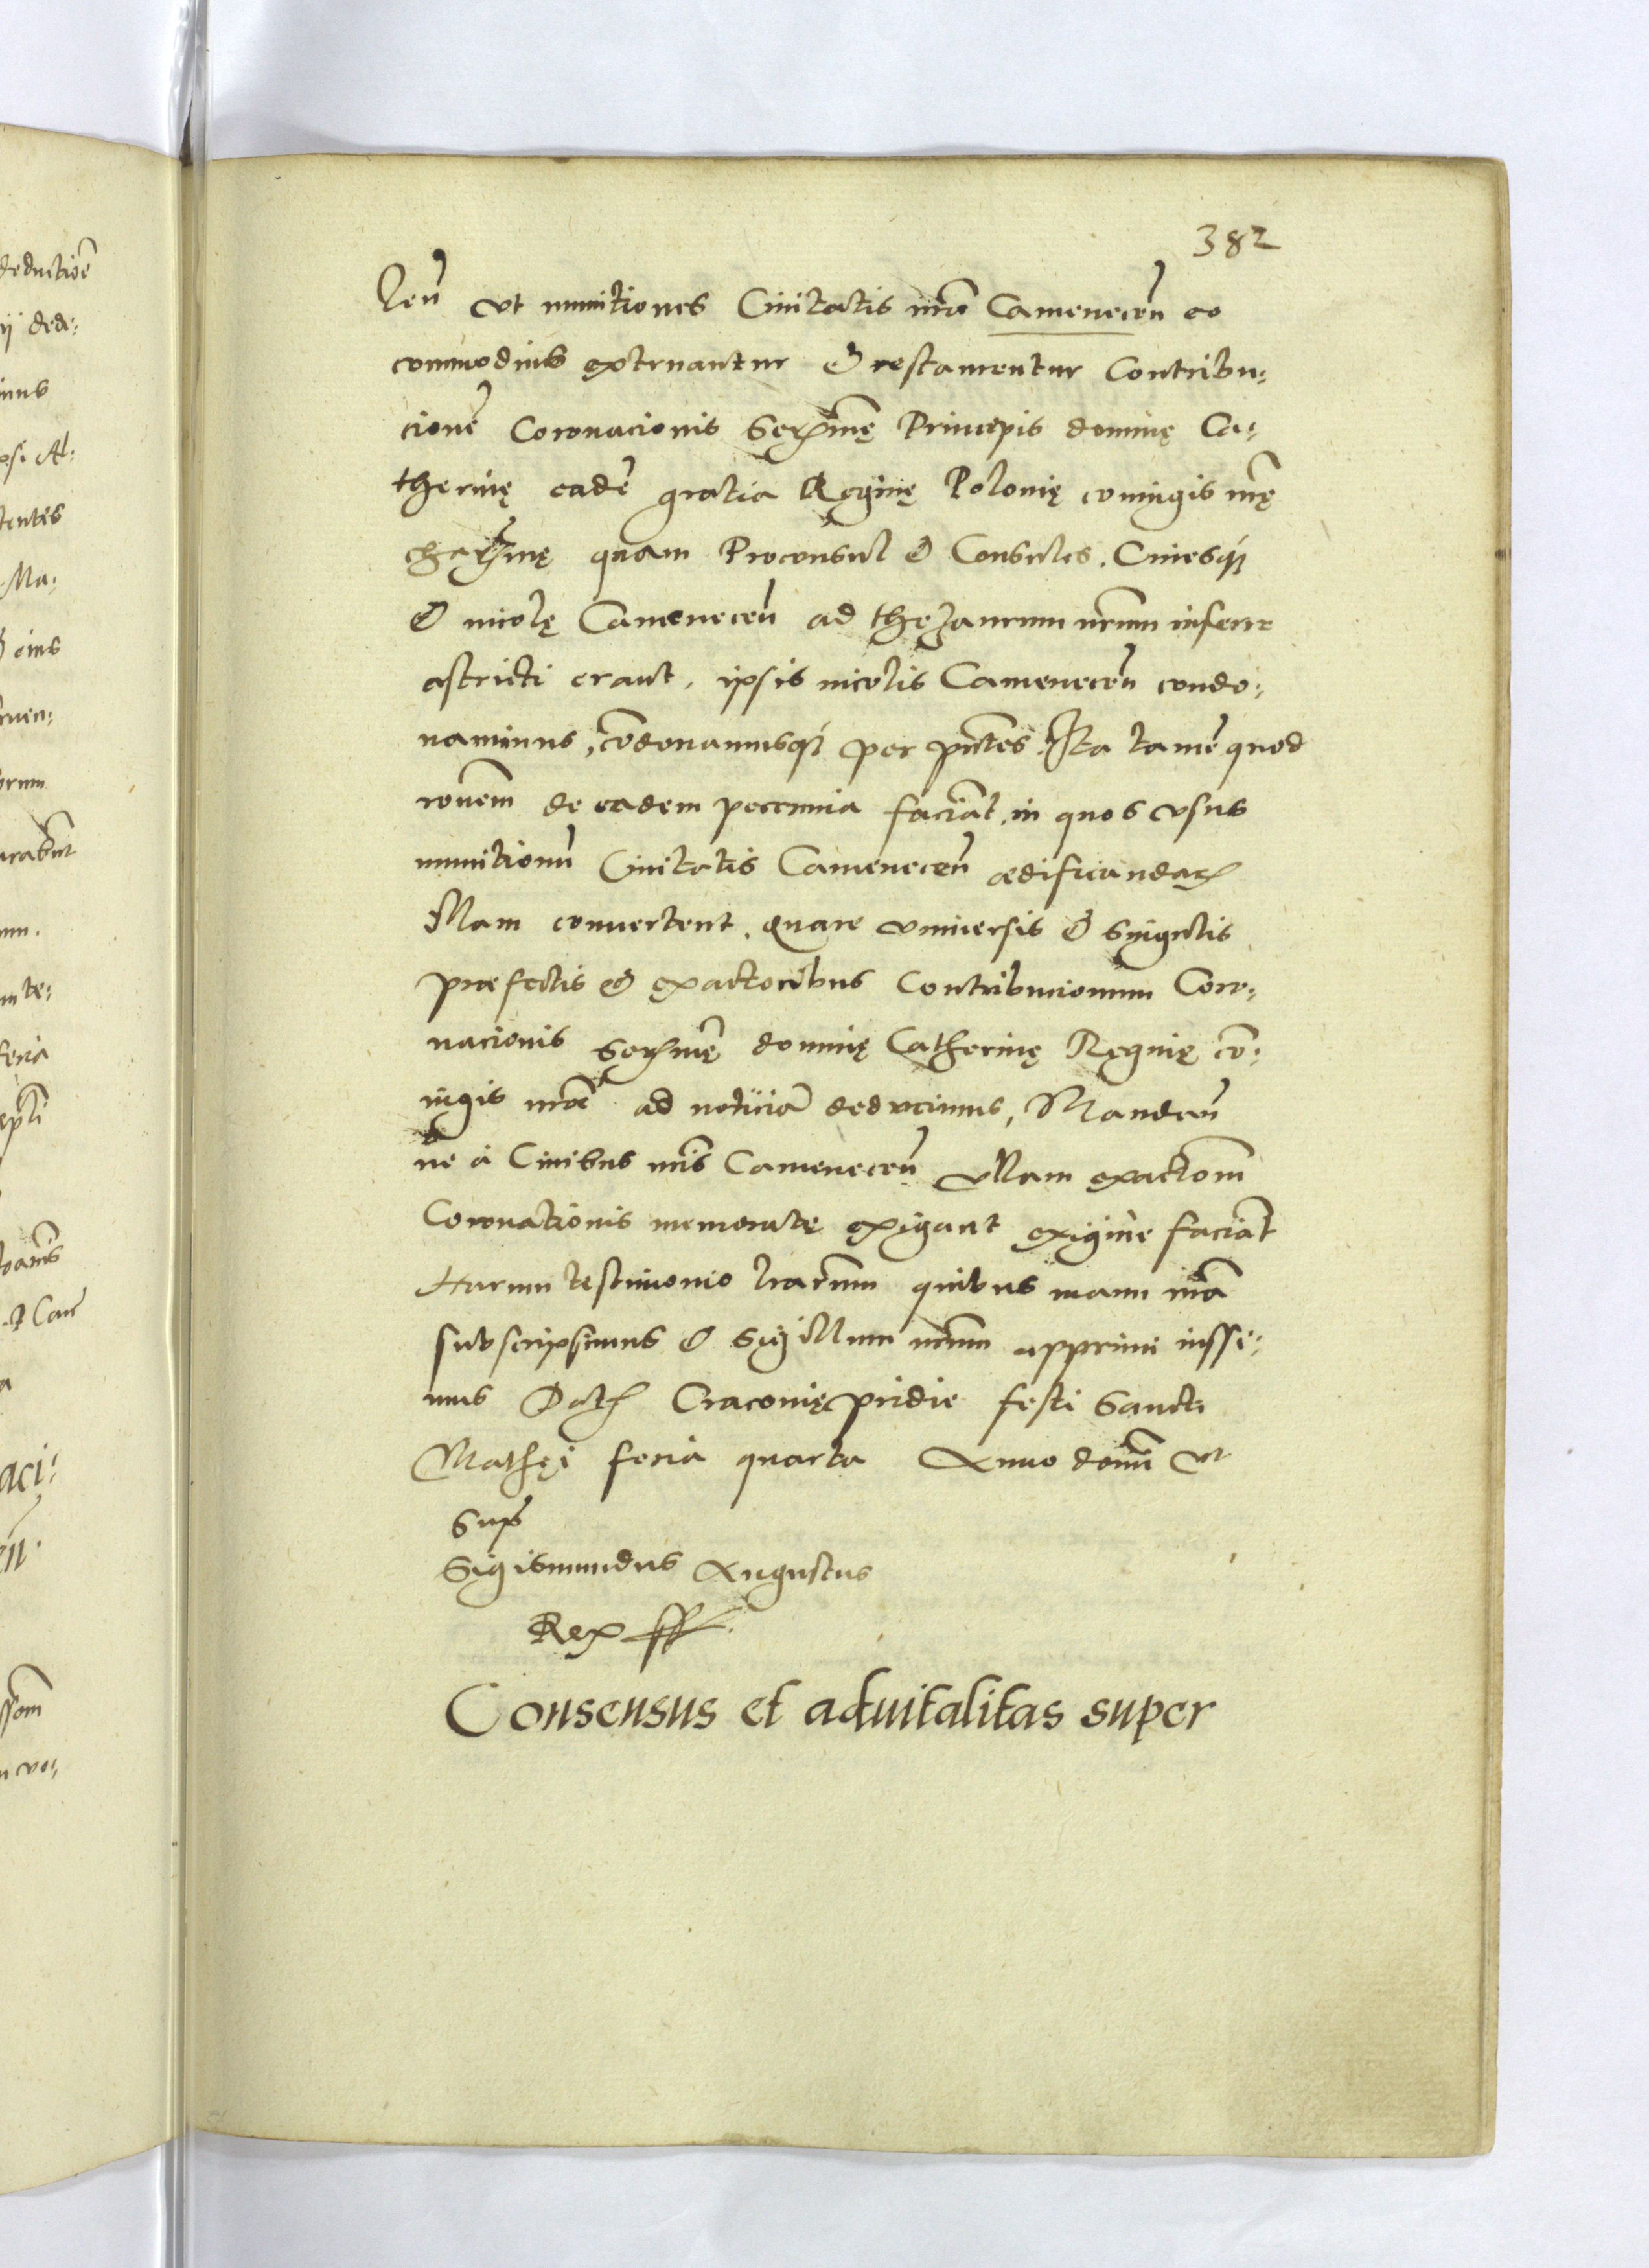 382
len̄ vt munitiones Ciuitatis nr̄ā Camenecen̄ eo
commodius extruantur & restaurentur Contribu:
cionē Coronacionis Serm̄ę Principis dominę Ca:
therinę eadē gratia Reginę Polonię coniugis nr̄ę
charm̄ę quam Proconsul & Consules. Ciuesq;
& incolę Camenecen̄ ad thezaurum nrūm inferre
astricti erant, ipsis incolis Camenecen̄ condo:
nauimus, cōdonamusq; per pn̄tes. Ita tamē quod
rōnem de eadem pecunia faciāt, in quos vsus
munitionū Ciuitatis Camenecen̄ ædificandar
illam conuertent. quare vniuersis & singulis
præfectis & exactoribus Contribucionum Coro:
nacionis Serm̄ę dominę Catherinę Reginę cō:
iugis nr̄æ ad noticiā deducimus, Mandan̄
ne a Ciuibus nr̄is Camenecen̄ vllam exactiōm
Coronationis memoratę exigant exigiue faciāt
Harum testimonio lrārum quibus manu nr̄ā
subscripsimus & Sigillum nrūm apprimi iussi:
mus Dat Cracouię pridie festi Sancti
Mathęi feria quarta Anno domī vt
Supr
Sigismundus Augustus
Rex ss
Consensus et aduitalitas super
deductiōē
ij dede:
psi Al:
tentes
Ma:
& eius
orum
feria
aci: